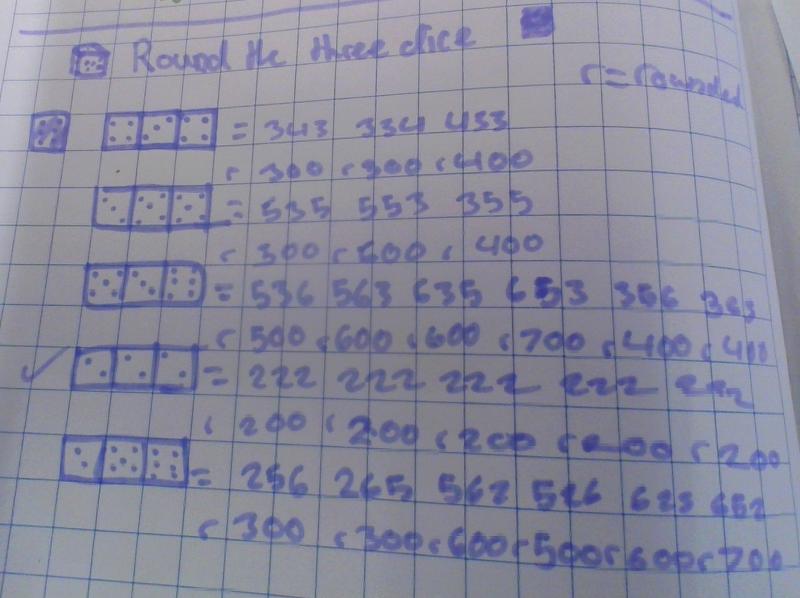 Round the three dice
r = rounded
= 343 334 433
r 300 r 300 r 400
= 535 553 355
r 300 r 600 r 400
= 536 563 635 653 356 363
r 500 r 600 r 600 r 700 r 400 r 400
= 222 222 222 222 222
r 200 r 200 r 200 r 200 r 200
= 256 265 562 526 623 652
r 300 r 300 r 600 r 500 r 600 r 700